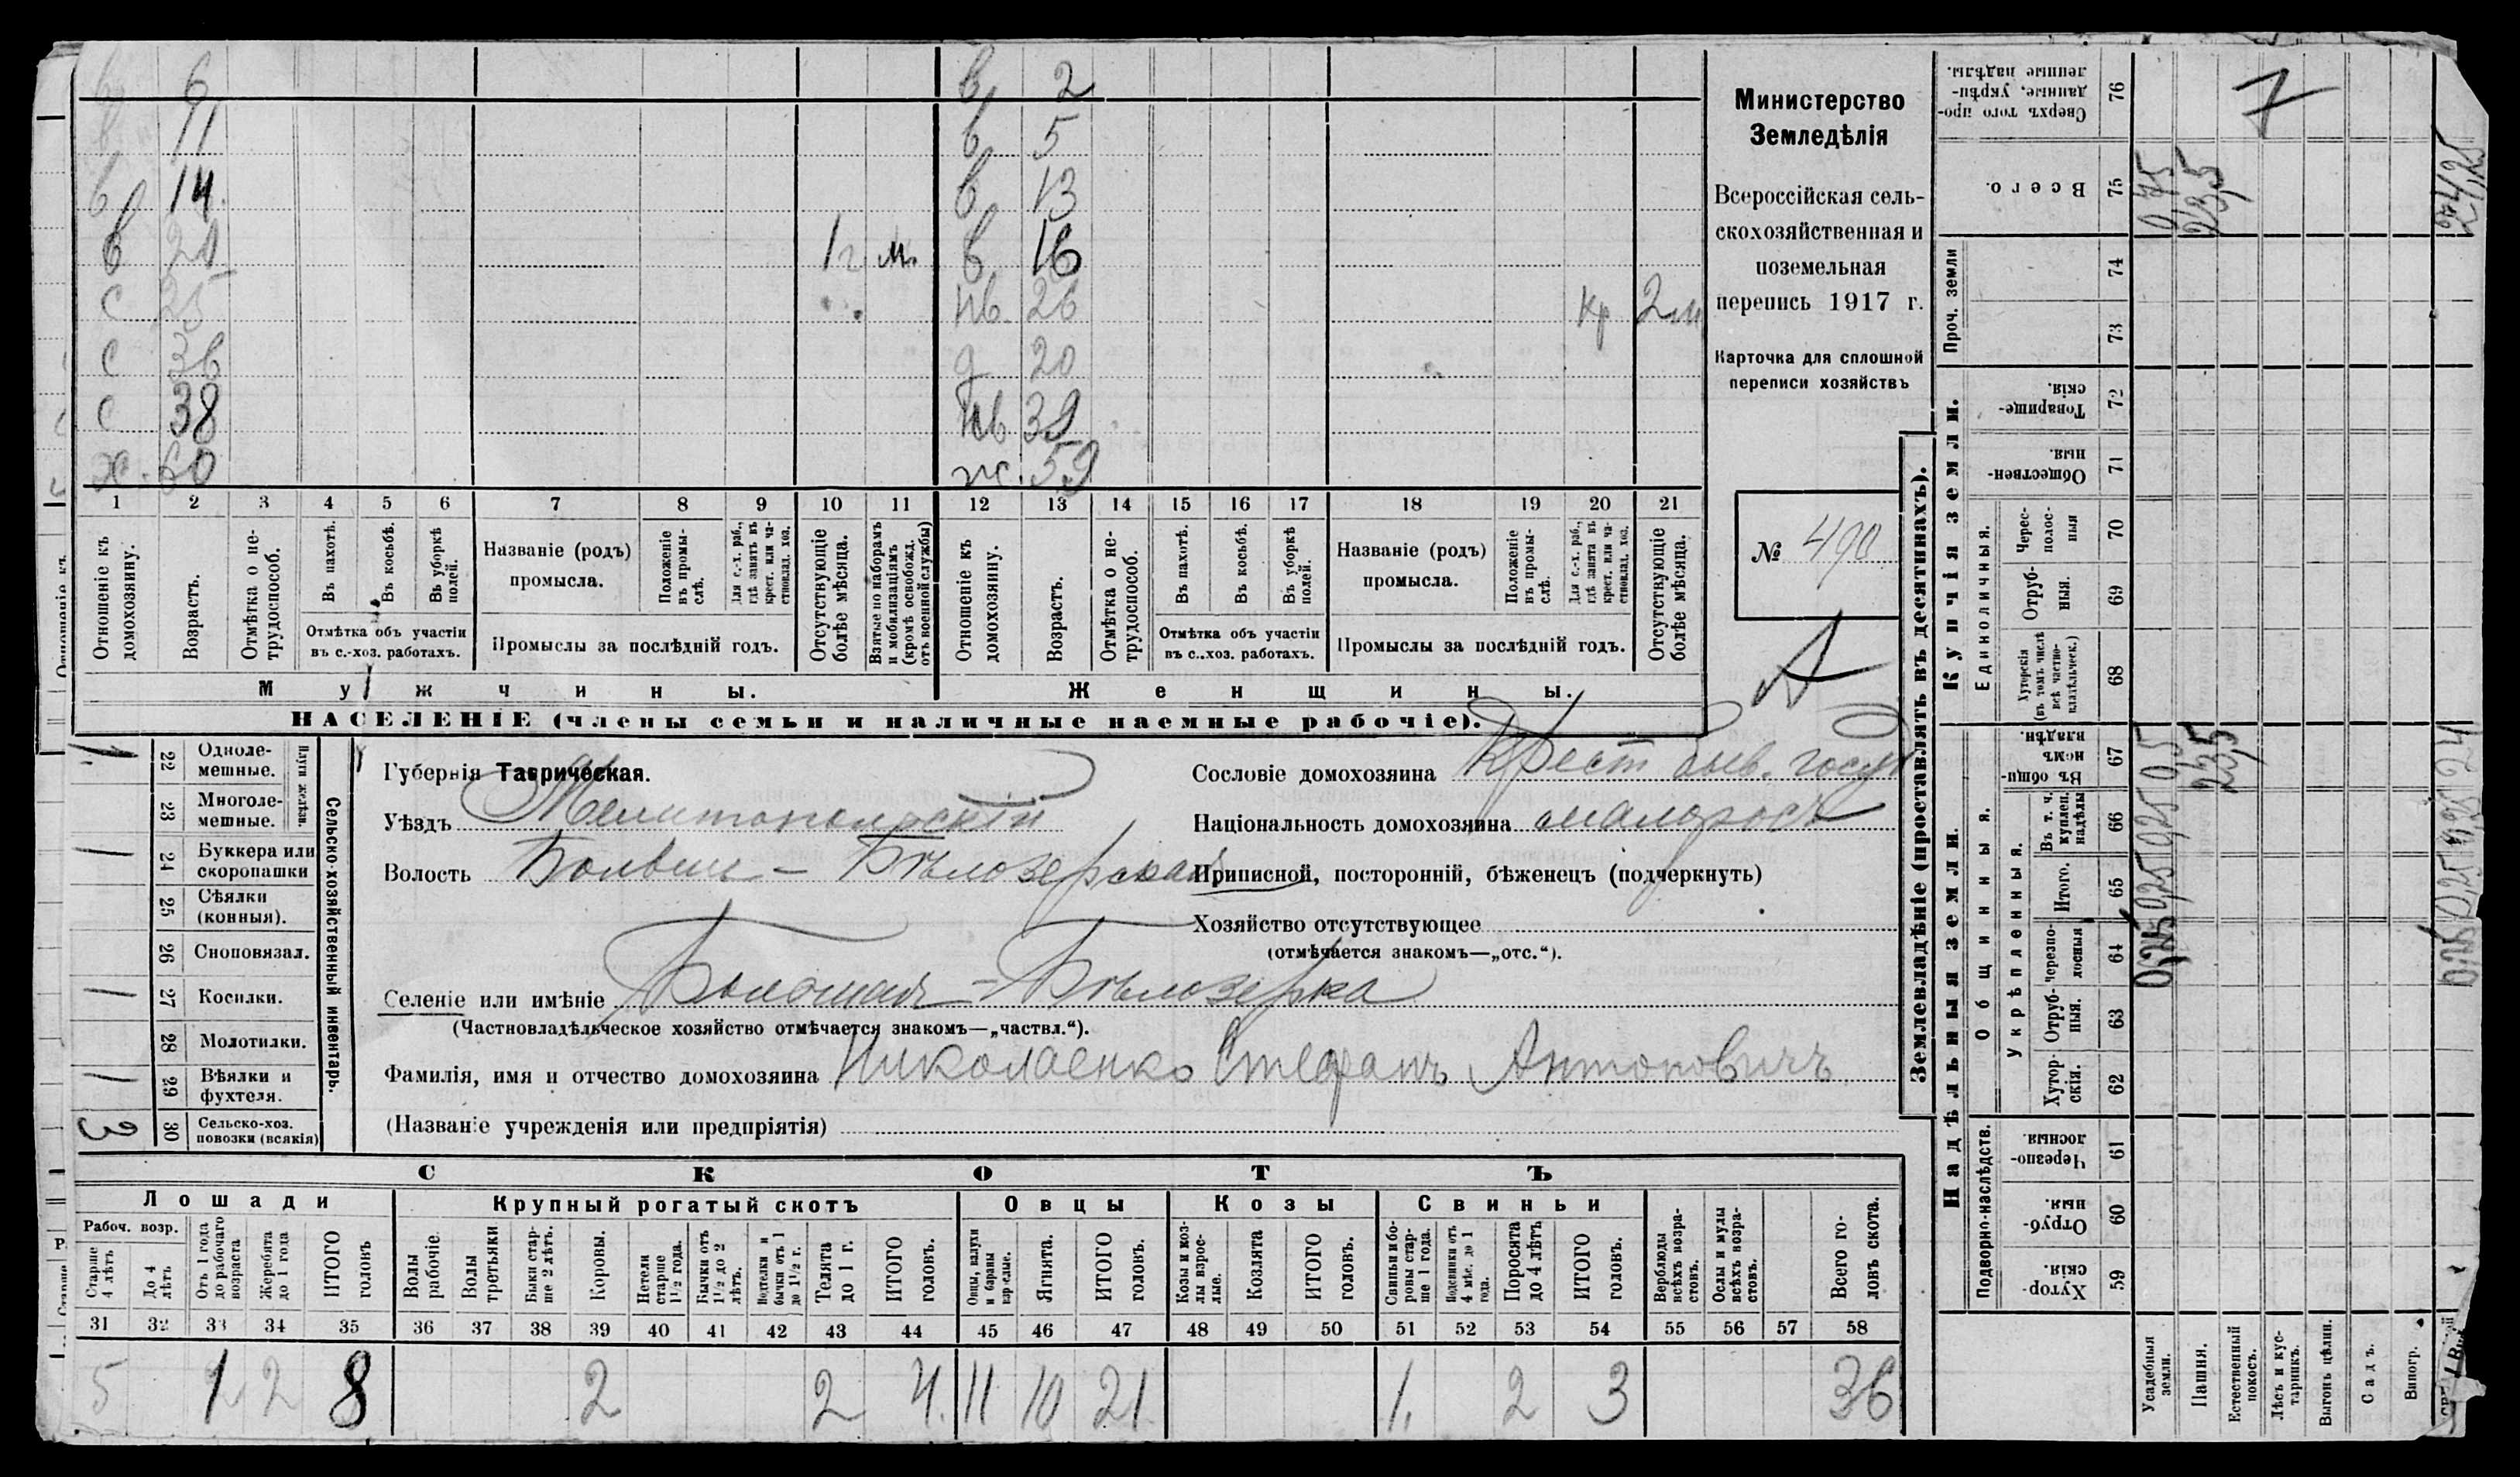 в 6 в 2
в 11 в 5
в 14 в 13
в 21 1 г м. в 16
с 25 нв. 26 кр 2 м
с 36 д 20
с 38 нв 39
х. 60 ж. 59
1 2 3 4 5 6 7 8 9 10 11 12 13 14 15 16 17 18 19 20 21
Отношеніе къ домохозяину.
Возрастъ.
Отмѣтка о не-трудоспособ.
Въ пахотѣ.
Въ косьбѣ.
Въ уборкѣ полей.
Отмѣтка объ участіи
въ с.-хоз. работахъ.
Названіе (родъ)
промысла.
Положеніе въ промы-слѣ.
Для с.-х. раб., гдѣ занятъ въ крест. или ча-стновлад. хоз.
Промыслы за послѣдній годъ.
Отсутствующіе болѣе мѣсяца.
Взятые по наборамъ и мобилизаціямъ (кромѣ освобожд. отъ военной службы)
Отношеніе къ домохозяину.
Возрастъ.
Отмѣтка о не-трудоспособ.
Въ пахотѣ.
Въ косьбѣ.
Въ уборкѣ полей.
Отмѣтка объ участіи
въ с.-хоз. работахъ.
Названіе (родъ)
промысла.
Положеніе въ промы-слѣ.
Для с.-х. раб., гдѣ занята въ крест. или ча-стновлад. хоз.
Промыслы за послѣдній годъ.
Отсутствующіе болѣе мѣсяца.
Мужчины.
Женщины.
НАСЕЛЕНІЕ (члены семьи и наличные наемные рабочіе).
Министерство
Земледѣлія
Всероссійская сель-
скохозяйственная и
поземельная
перепись 1917 г.
Карточка для сплошной
переписи хозяйствъ
№ 490
А
1 22 Одноле-мешные.
23 Многоле-мешные.
Плуги желѣзн.
1 24 Буккера или скоропашки
25 Сѣялки (конныя).
26 Сноповязал.
1 27 Косилки.
28 Молотилки.
1 29 Вѣялки и фухтеля.
3 30 Сельско-хоз. повозки (всякія)
Сельско-хозяйственный инвентарь.
Губернія Таврическая.
Уѣздъ Мелитопольскій
Волость Больше-Бѣлозерская
Сословіе домохозяина Крест быв. госуд
Національность домохозяина малоросъ
Приписной, посторонній, бѣженецъ (подчеркнуть)
Хозяйство отсутствующее
(отмѣчается знакомъ—„отс.“).
Селеніе или имѣніе Большая-Бѣлозерка
(Частновладѣльческое хозяйство отмѣчается знакомъ—„частвл.“).
Фамилія, имя и отчество домохозяина Николаенко Стефанъ Антоновичъ
(Названіе учрежденія или предпріятія)
СКОТЪ
Лошади
Крупный рогатый скотъ
Овцы
Козы
Свиньи
Рабоч. возр.
Старше 4 лѣтъ
До 4 лѣтъ
Отъ 1 года до рабочаго возраста
Жеребята до 1 года
ИТОГО головъ
Волы рабочіе.
Волы третьяки
Быки стар-ше 2 лѣтъ.
Коровы.
Нетели старше 1½ года.
Бычки отъ 1½ до 2 лѣтъ.
Нетелки и бычки отъ 1 до 1½ г.
Телята до 1 г.
ИТОГО головъ.
Овцы, валухи и бараны взрослые.
Ягнята.
ИТОГО головъ.
Козы и коз-лы взрос-лые.
Козлята
ИТОГО головъ.
Свиньи и бо-ровы стар-ше 1 года.
Подсвинки отъ 4 мѣс. до 1 года.
Поросята до 4 лѣтъ
ИТОГО головъ.
Верблюды всѣхъ возра-стовъ.
Ослы и мулы всѣхъ возра-стовъ.
Всего го-ловъ скота.
31 32 33 34 35 36 37 38 39 40 41 42 43 44 45 46 47 48 49 50 51 52 53 54 55 56 57 58
5 1 2 8 2 2 4. 11 10 21 1. 2 3 36
Землевладѣніе (проставлять въ десятинахъ).
Надѣльныя земли.
Купчія земли.
Проч. земли
Подворно-наслѣдств.
Общинныя.
Укрѣпленныя.
Единоличныя.
59 Хутор-скія.
60 Отруб-ныя.
61 Черезпо-лосныя.
62 Хутор-скія.
63 Отруб-ныя.
64 Черезпо-лосныя 0,25
65 Итого. 0,25
66 Въ т. ч. куплен. надѣлы 0,25
67 Въ общин-номъ владѣн. 0,5 23,5 24
68 Хуторскія (въ томъ числѣ всѣ частно-владѣльческ.)
69 Отруб-ныя.
70 Черес-полос-ныя
71 Обществен-ныя.
72 Товарище-скія.
73
74
75 Всего. 0,75 23,5 24,25
76 Сверхъ того про-данные, укрѣп-ленные надѣлы.
7
Усадебныя земли.
Пашня.
Естественный покосъ.
Лѣсъ и кус-тарникъ.
Выгонъ цѣлин.
Садъ.
Виногр.